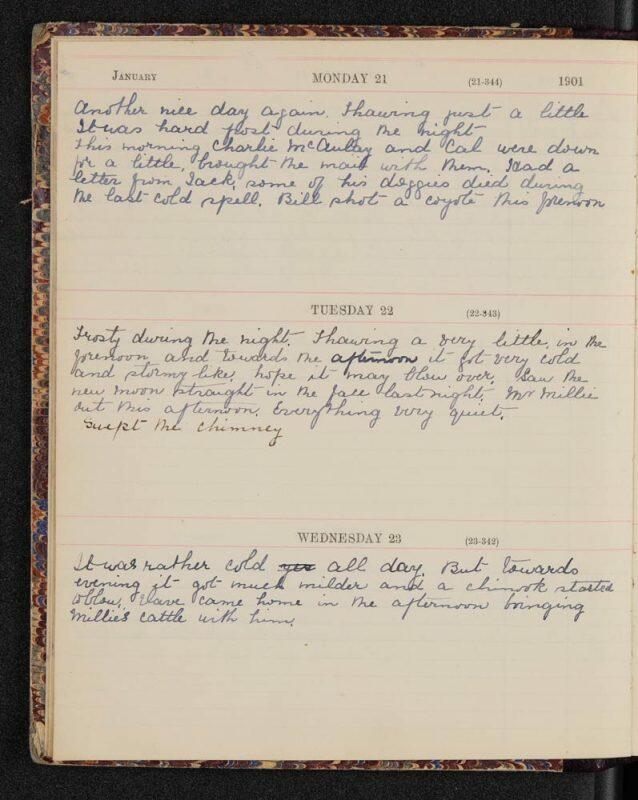 January MONDAY 21 (21-344) 1901
Another nice day again. Thawing just a little
It was hard frost during the night
This morning Charlie McAulay and Cal were down
for a little, brought the mail with them. Had a
letter from Jack, some of his doggies died during
the last cold spell. Bill shot a coyote this forenoon
TUESDAY 22 (22-343)
Frosty during the night. Thawing a very little, in the
forenoon, and towards the afternoon it got very cold
and stormy like, hope it may blow over. Saw the
new moon straight in the face last night. Mr Millie
out this afternoon. Everything very quiet.
Swept the chimney
WEDNESDAY 23 (23-342)
It was rather cold all day. But towards
evening it got much milder and a chinook started
to blow. Dave came home in the afternoon bringing
Millie's cattle with him.